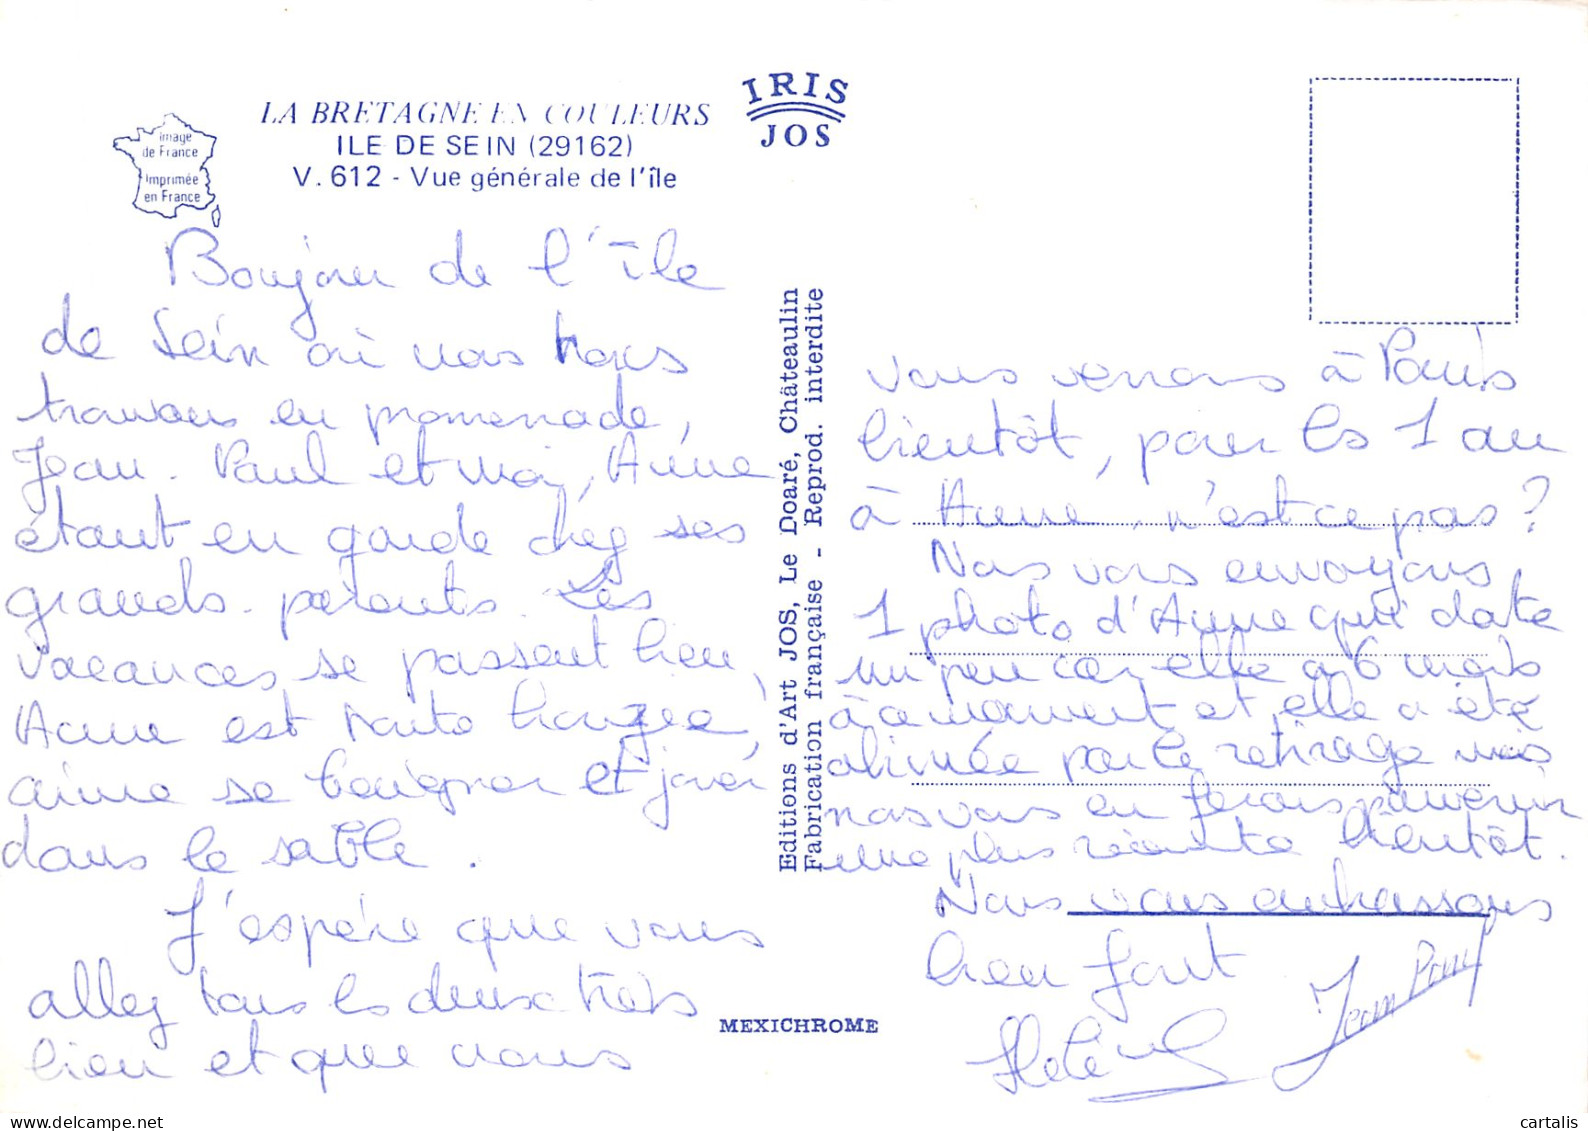 LA BRETAGNE EN COULEURS
ILE DE SEIN (29162)
V. 612 - Vue générale de l'île
image
de France
imprimée
en France
IRIS
JOS
Bonjour de l'île
de Sein où nous nous
trouvons en promenade,
Jean-Paul et moi, Anne
étant en garde chez ses
grands-parents. Les
vacances se passent bien,
Anne est toute bronzée,
aime se baigner et jouer
dans le sable.
J'espère que vous
allez tous les deux très
bien et que vous
Editions d'Art JOS, Le Doaré, Châteaulin
Fabrication française - Reprod. interdite
MEXICHROME
vous verrons à Paris
bientôt, pour les 1 an
à Anne, n'est ce pas?
Nous vous envoyons
1 photo d'Anne qui date
un peu car elle a 6 mois
à ce moment et elle a été
abimée par le retirage mais
nous vous en ferons parvenir
une plus récente bientôt.
Nous vous embrassons
bien fort
Hélène
Jean Paul
www.delcampe.net
cartalis